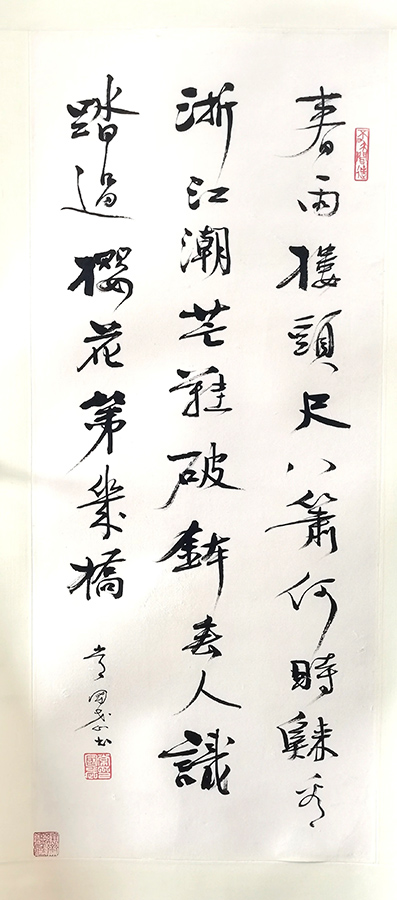 春雨楼頭尺八簫何時歸看
浙江潮芒鞋破鉢無人識
踏過櫻花第幾橋
國 書